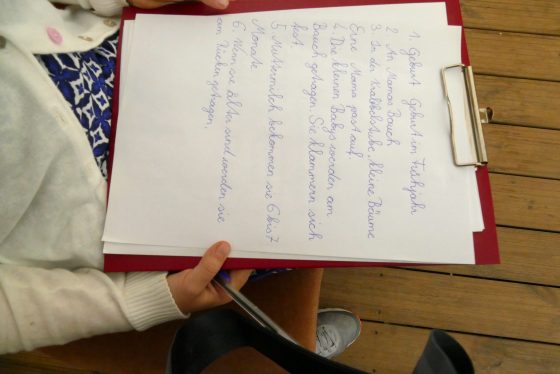 1. Geburt Geburt im Frühjahr
2. An Mamas Bauch
3. In der Krabbelstube, kleine Bäume
Eine Mama past auf.
4. Die kleinen Babys werden am
Bauch getragen. Sie klammern sich
fest.
5. Muttermilch bekommen sie 6 bis 7
Monate
6. Wenn sie älter sind werden sie
am Rücken getragen.